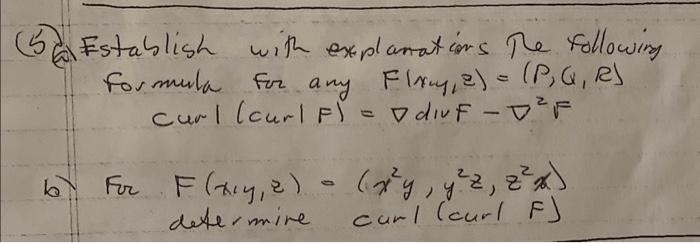 (5) a) Establish with explanations The following
formula for any F(x,y,z) = (P, Q, R)
curl (curl F) = ∇ div F - ∇²F
b) For F(x,y,z) = (x²y, y²z, z²x)
determine curl (curl F)